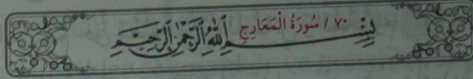 ٧٠ / سُورَةُ الْمَعَارِجِ
بِسْمِ اللَّهِ الرَّحْمَٰنِ الرَّحِيمِ